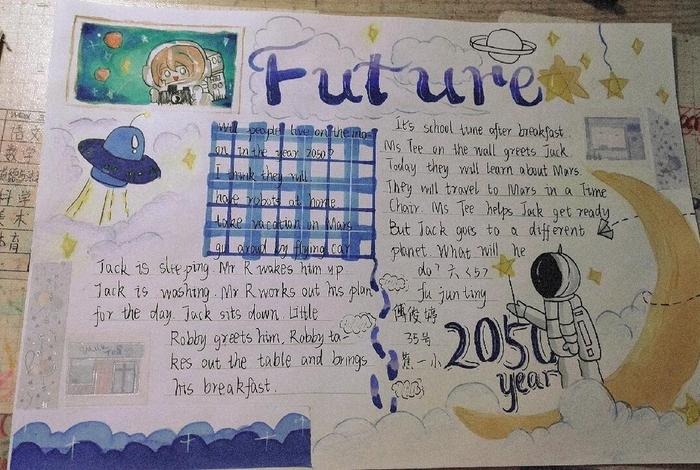 Future
Will people live on the mo-
on in the year 2050?
I think they will
have robots at home
take vacation on Mars
go aroud by flying car
Jack is sleeping. Mr R wakes him up
Jack is washing. Mr R works out his plan
for the day. Jack sits down. Little
Robby greets him. Robby ta-
kes out the table and brings
his breakfast.
It's school time after breakfast.
Ms Tee on the wall greets Jack.
Today they will learn about Mars.
They will travel to Mars in a Time
Chair. Ms Tee helps Jack get ready
But Jack goes to a different
planet. What will he
do? 六<5>
fu jun ting
傅俊婷
35号
焦一小
2050
year
语文
数学
科学
美术
体育